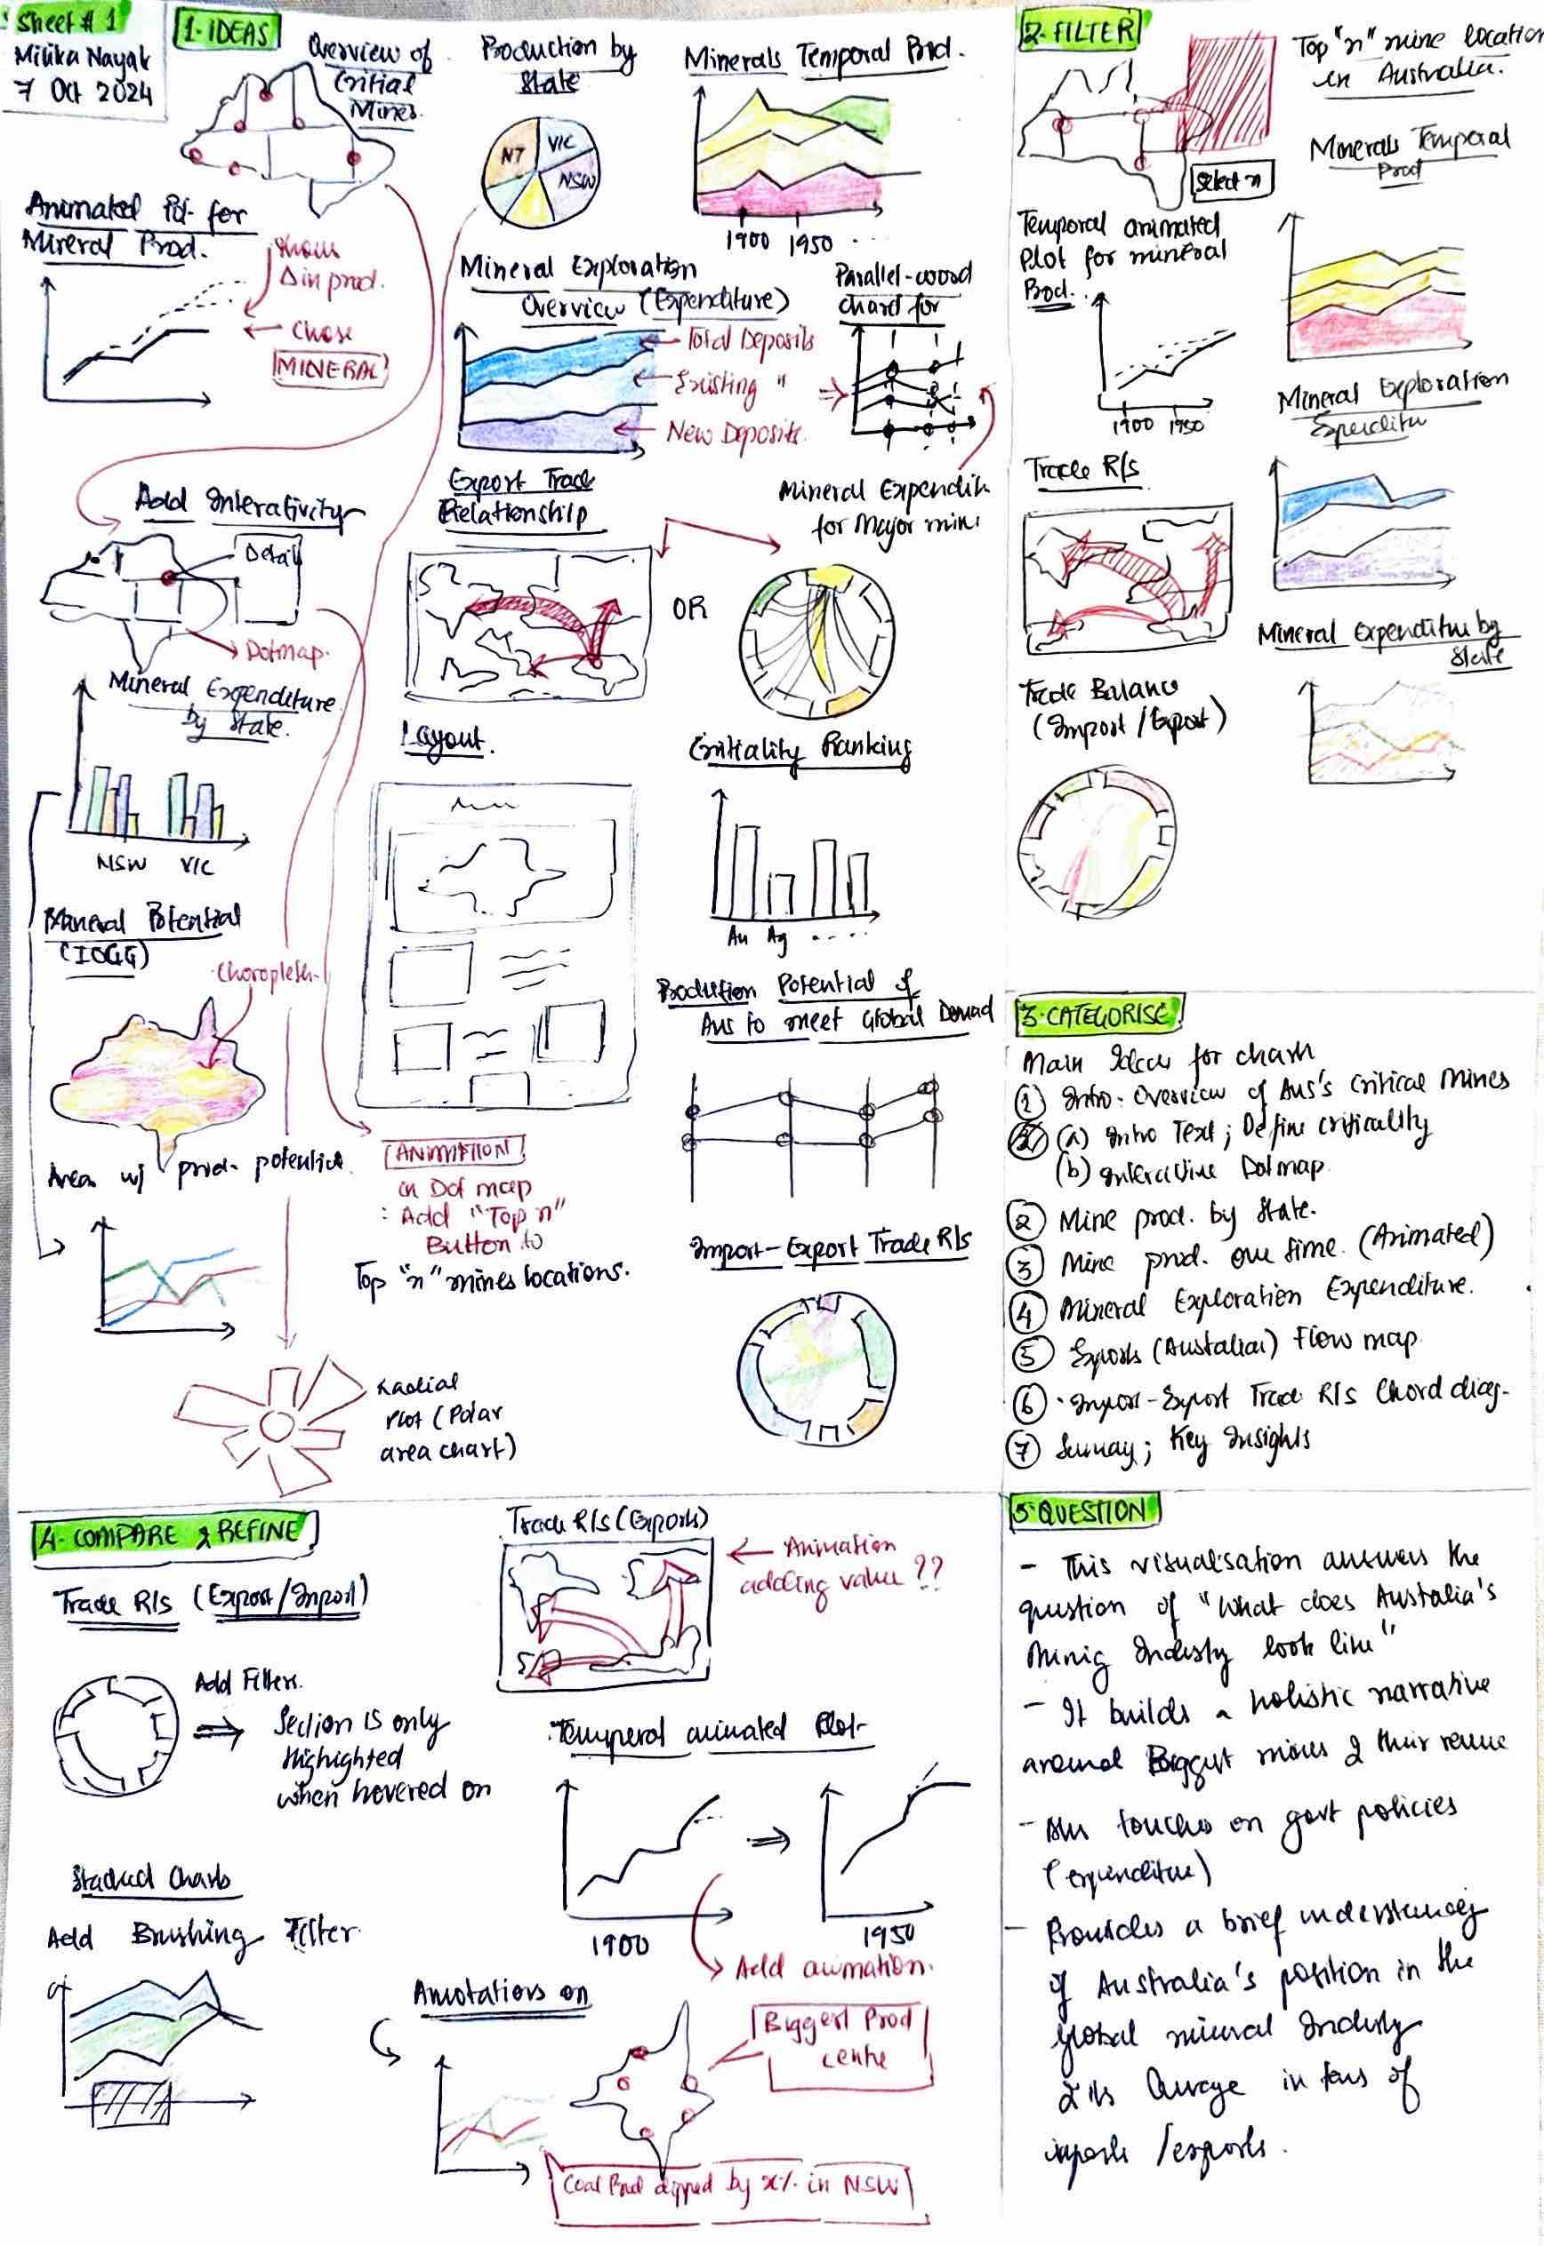 Sheet # 1
Milika Nayak
7 Oct 2024
1. IDEAS
Overview of
Critial
Mines.
Production by
State
NT
VIC
NSW
Minerals Temporal Prod.
1900 1950 ...
Animated Plt. for
Mineral Prod.
show
Δ in prod.
← Chose
MINERAL
Mineral Exploration
Overview (Expenditure)
← Total Deposits
← Existing "
← New Deposits.
Parallel-coord
chart for
Mineral Expendit
for Major mini
Add Interativity
Detail
→ Dotmap.
Export Trade
Relationship
OR
Mineral Expenditure
by State.
NSW VIC
Layout.
Critiality Ranking
Au Ag ....
Mineral Potential
(IOGG)
Choropleth.
Area w/ prod. potential.
Prodution Potential of
Aus to meet Global Demad
ANIMATION
in Dot map
: Add "Top n"
Button to
Top "n" mines locations.
Import-Export Trade R/s
Radial
Plot (Polar
area chart)
2. FILTER
Top "n" mine location
in Australia.
Select n
Minerals Temporal
Prod
Temporal animated
Plot for mineral
Prod.
1900 1950
Mineral Exploration
Expenditu
Trade R/s
Mineral Expenditure by
State
Trade Balance
(Import / Export)
3. CATEGORISE
Main Ideas for chart
① Intro: Overview of Aus's Critical Mines
(a) Intro Text; Define criticality
(b) Interactive Dotmap
② Mine prod. by State.
③ Mine prod. over time. (Animated)
④ Mineral Exploration Expenditure.
⑤ Exports (Australian) Flow map.
⑥ Import-Export Trade R/s Chord diag.
⑦ Key Insights
4. COMPARE & REFINE
Trade R/s (Export/Import)
Add Filters.
⇒ Section is only
Highighted
when hovered on
Trade R/s (Exports)
← Animation
adding value ??
Temporal animated Plot-
⇒
1900 1950
Add animation.
Stacked Charts
Add Brushing Filter.
Annotations on
Biggest Prod
centre
Coal Prod dipped by x% in NSW
5. QUESTION
- This visualisation answers the
question of "What does Australia's
Minig Industy look like"
- It builds a holistic narrative
around Biggest mines & their
- touches on govt policies
(expenditure)
- Provides a brief understanding
of Australia's position in the
global mineral Industy
in terms of
imports /exports.